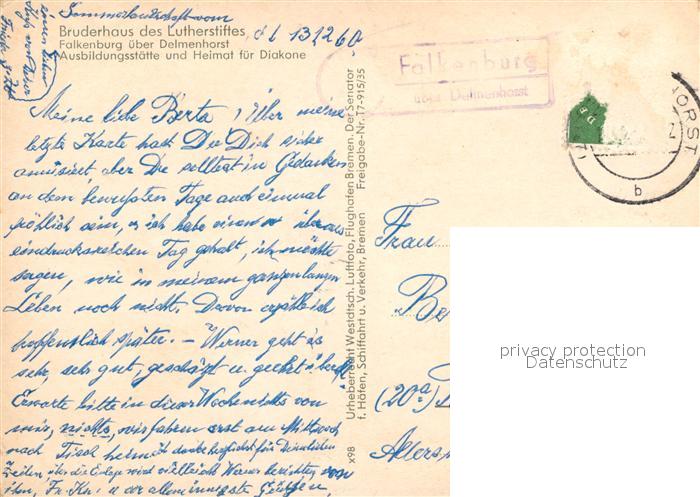 d. 6 13/12 60.
Bruderhaus des Lutherstiftes
Falkenburg über Delmenhorst
Ausbildungsstätte und Heimat für Diakone
Falkenburg
über Delmenhorst
HORST
b
Meine liebe Berta! Über meine
letzte Karte hast Du Dich sicher
amüsiert aber Du solltest in Gedanken
an dem bewußten Tage auch einmal
fröhlich sein, ich habe einen überaus
eindrucksreichen Tag gehabt, ich möchte
sagen, wie in meinem ganzen langen
Leben noch nicht. Davon erzähle ich
hoffentlich später. – Werner geht es
sehr, sehr gut, geschätzt u. geehrt überall
Erwarte bitte in dieser Woche nichts von
mir, nichts, wir fahren erst am Mittwoch
nach Tisch heim
Zeilen, über die wird vielleicht Werner berichten, von
ihm, Fr. Kn. u. der allerinnigste Grüße,
x98
Urheberrecht Westdtsch. Luftfoto, Flughafen Bremen. Der Senator
f. Häfen, Schiffahrt u. Verkehr, Bremen Freigabe-Nr. T7-915/35
Frau
Be
(20a)
Allers
privacy protection
Datenschutz